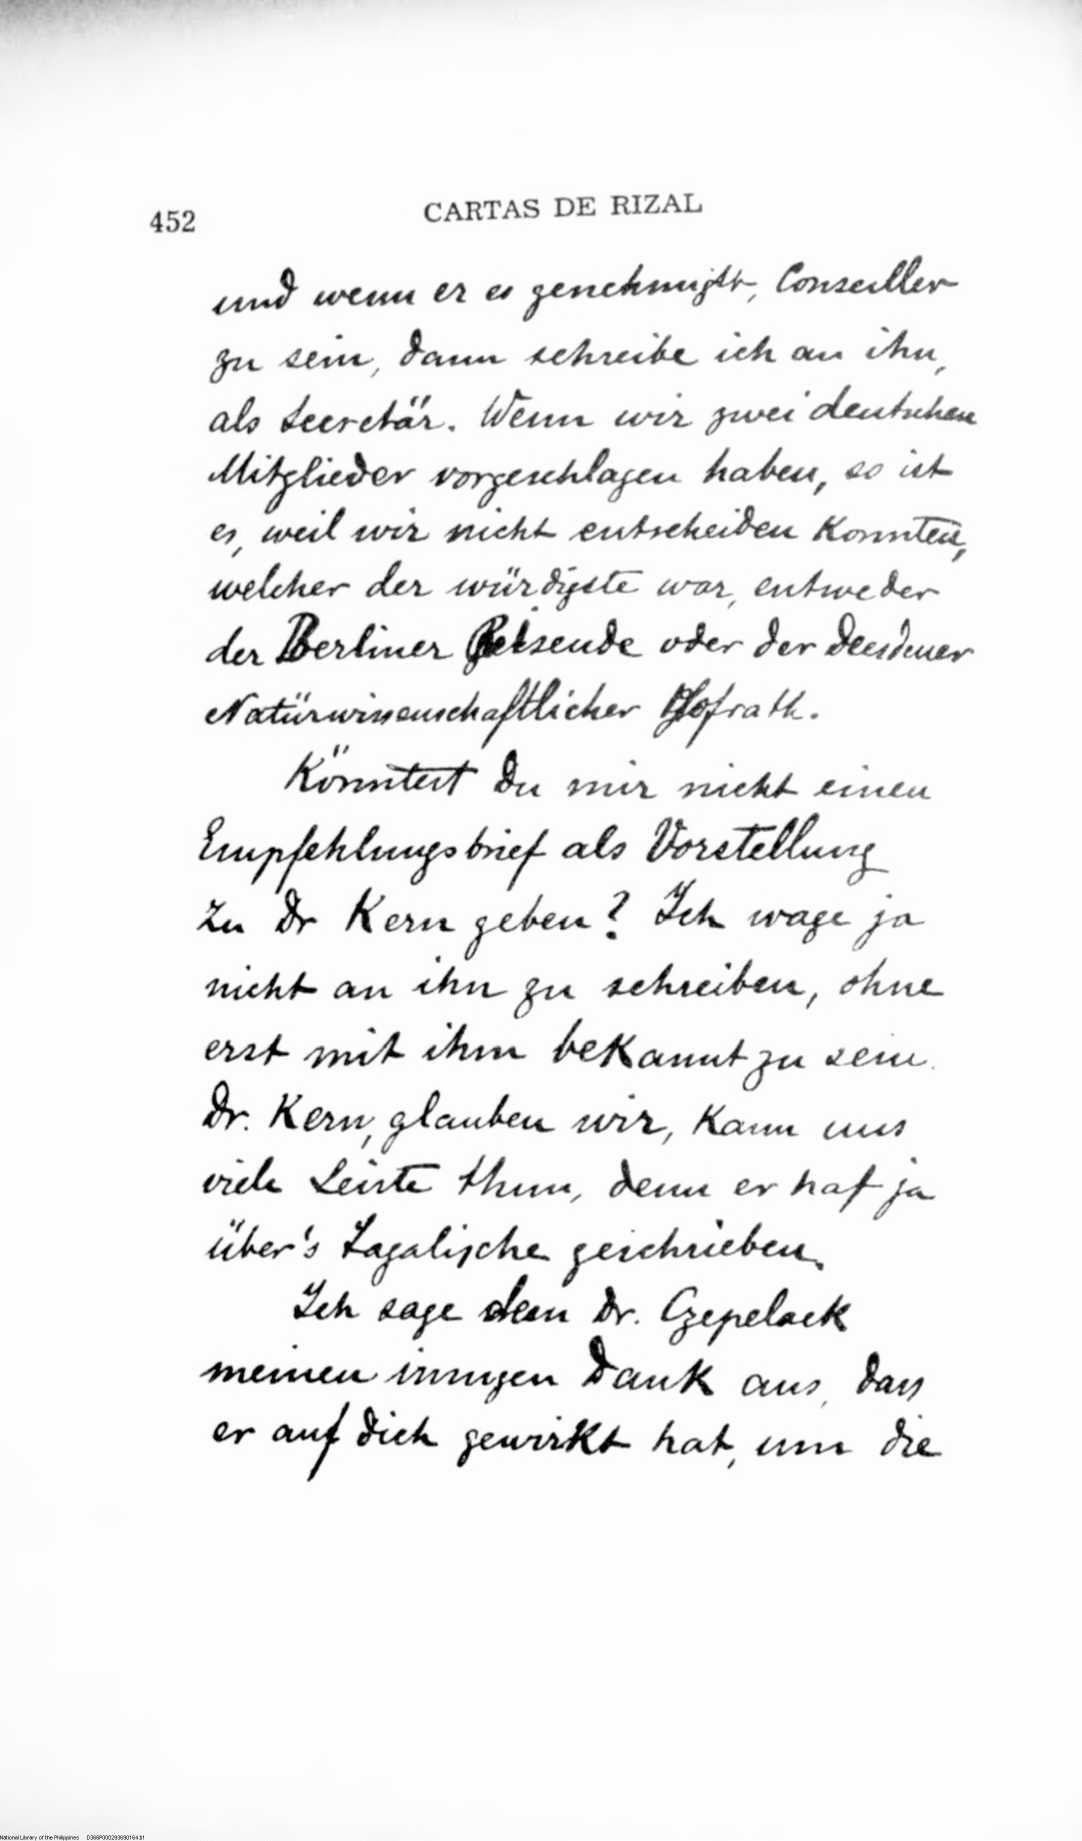 452
CARTAS DE RIZAL
und wenn er es genehmigt, Conseiller
zu sein, dann schreibe ich an ihn,
als Secretär. Wenn wir zwei deutschen
Mitglieder vorgeschlagen haben, so ist
es, weil wir nicht entscheiden Konnten,
welcher der würdigste war, entweder
der Berliner Reisende oder der Dresdener
Natürwissenschaftlicher Hofrath.
Könntest Du mir nicht einen
Empfehlungsbrief als Vorstellung
zu Dr Kern geben? Ich wage ja
nicht an ihn zu schreiben, ohne
erst mit ihm beKannt zu sein.
Dr. Kern, glauben wir, Kann uns
viele thun, denn er hat ja
über's Tagalische geschrieben.
Ich sage dem Dr. Czepelack
meinen innigen DanK aus, dass
er auf Dich gewirKt hat, um die
National Library of the Philippines